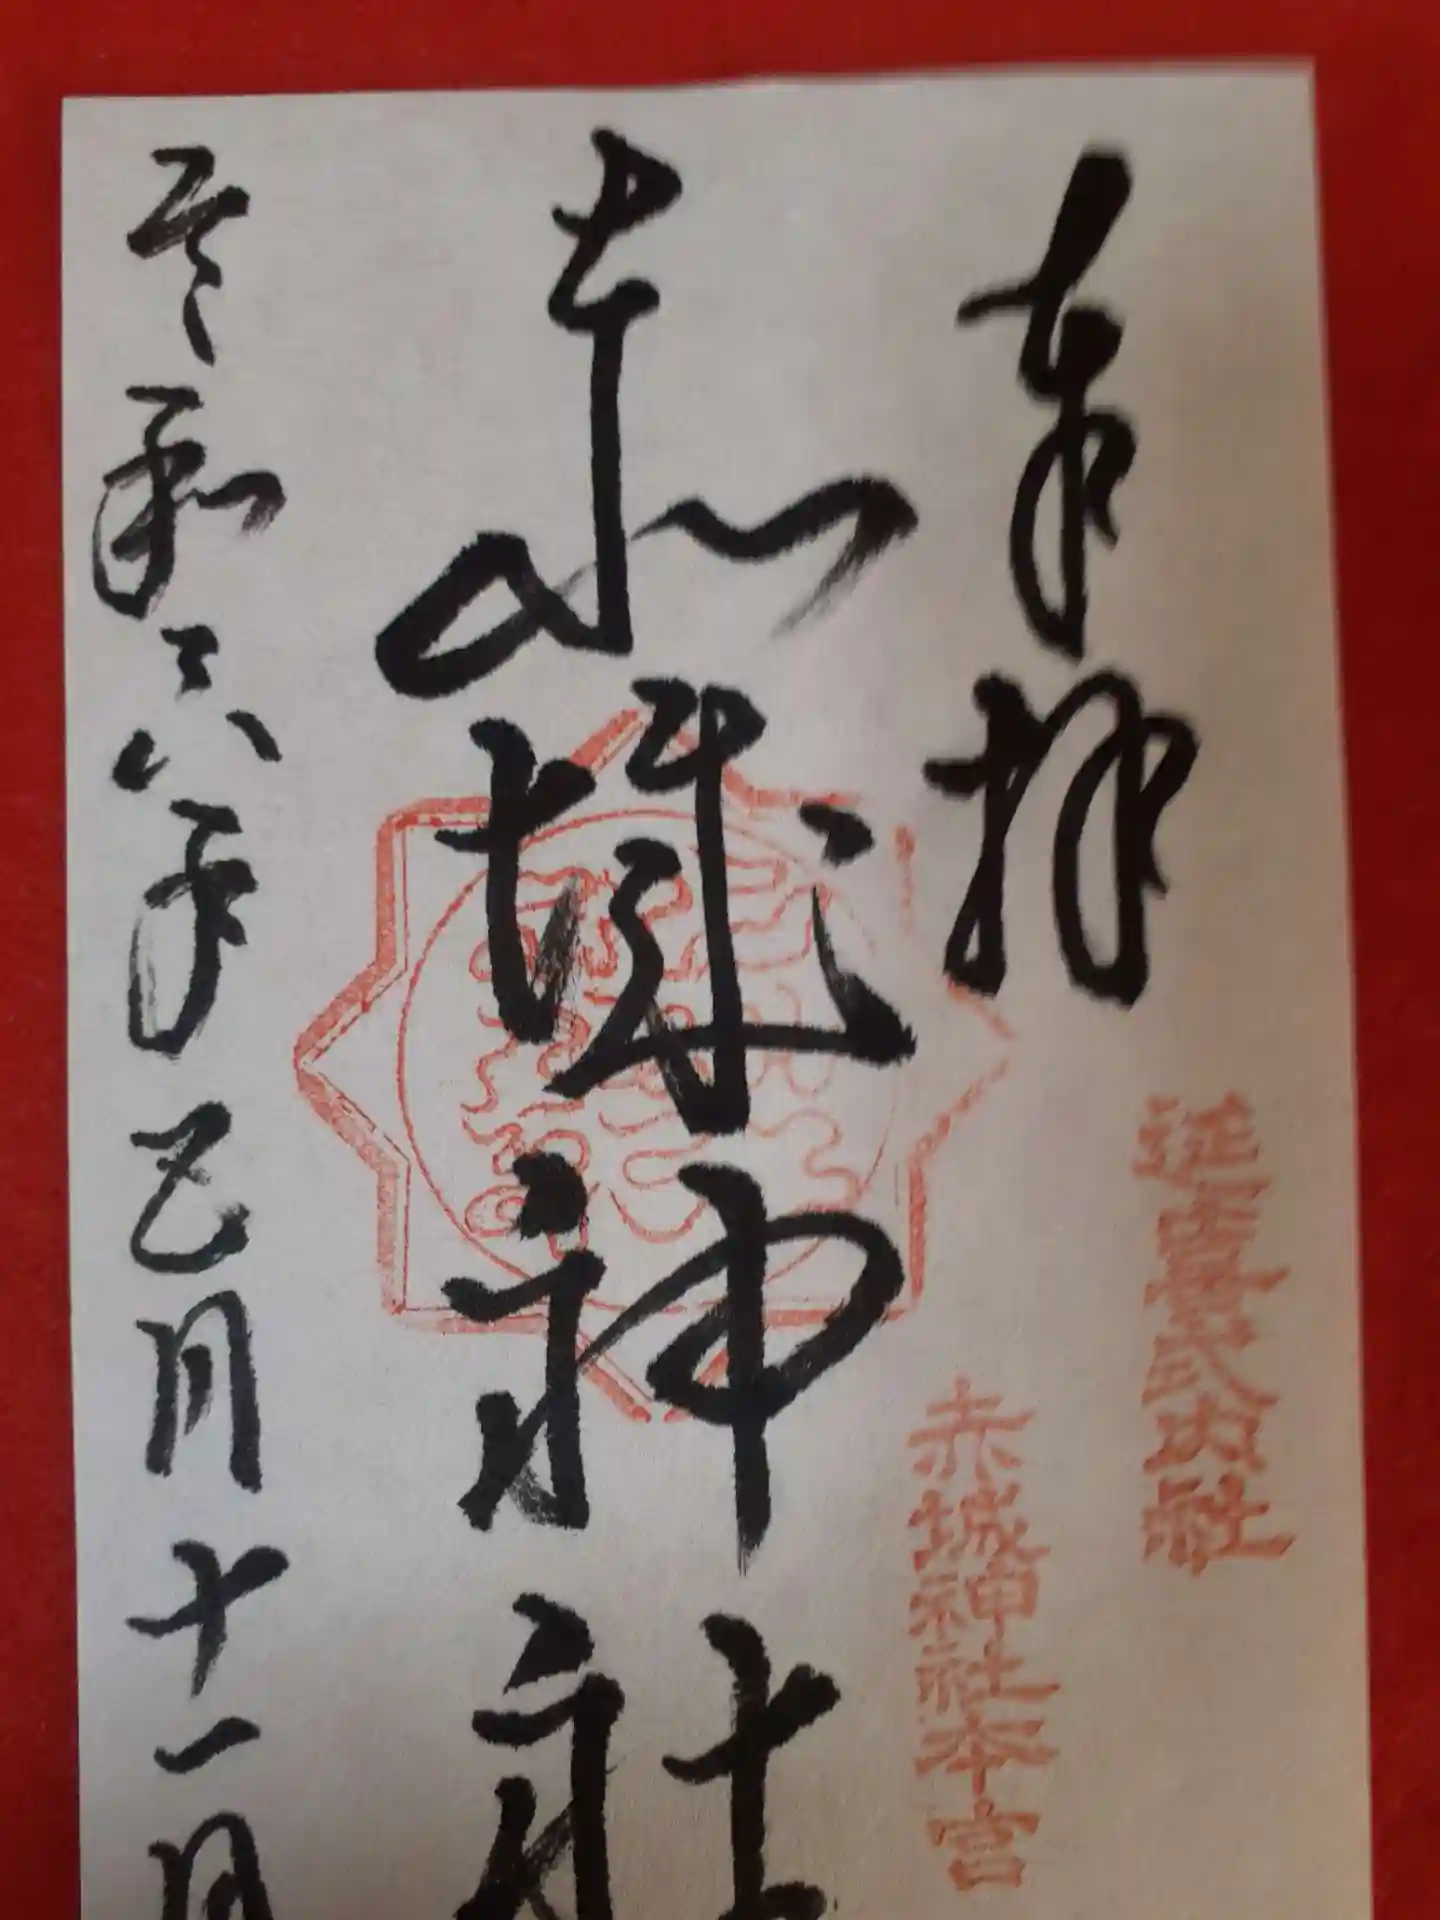 奉拝
延喜式内社
赤城神社本宮
赤城神社
令和六年五月十一日